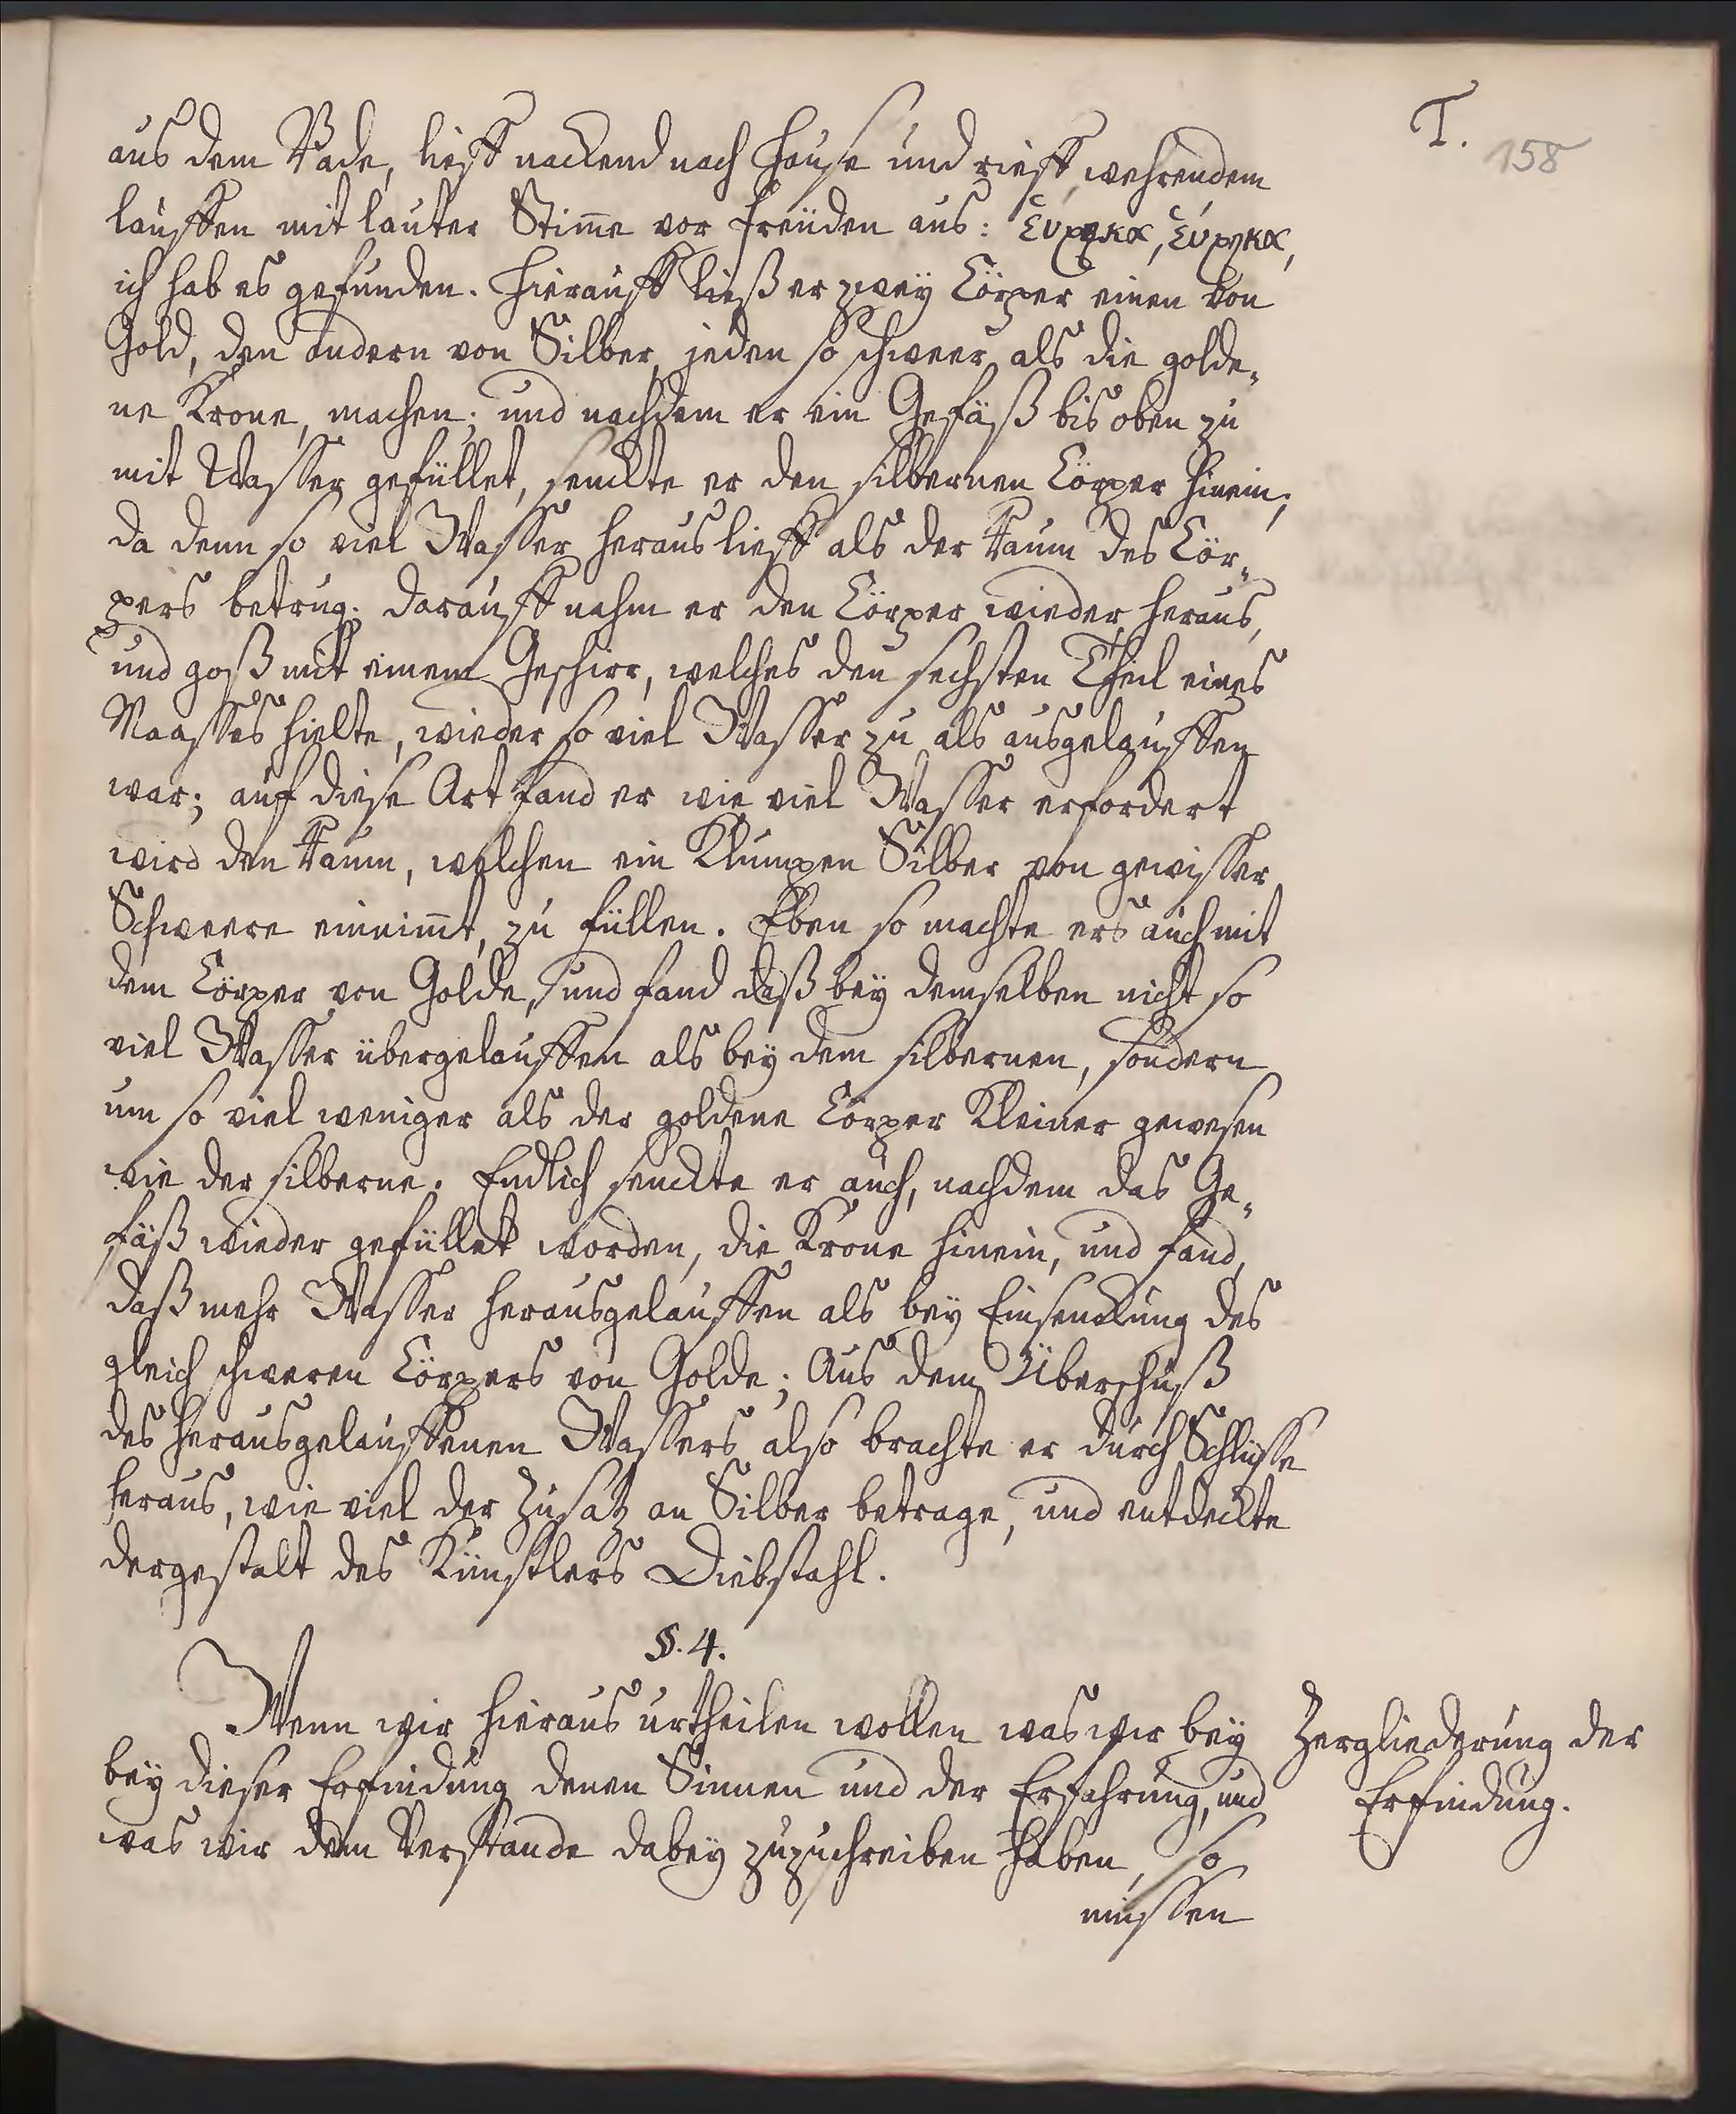 T.
158
aus dem Bade, lieff nackend nach Hause und rieff wehrendem
lauffen mit lauter Stim̄e vor Freuden aus: Εύρηκα, Εύρηκα,
ich hab es gefunden. Hierauff ließ er zwey Cörper einen von
Gold, den andern von Silber, jeden so schweer, als die golde„
ne Krone, machen; und nachdem er ein Gefäß bis oben zu
mit Wasser gefüllet, senckte er den silbernen Cörper hinein;
da denn so viel Wasser heraus lieff als der Raum des Cör„
pers betrug. Darauff nahm er den Cörper wieder heraus,
und goß mit einem Geschirr, welches den sechsten Theil eines
Maasses hielte, wieder so viel Wasser zu als ausgelauffen
war; auf diese Art fand er wie viel Wasser erfordert
wird den Raum, welchen ein Klumpen Silber von gewisser
Schweere einnim̄t, zu füllen. Eben so machte ers auch mit
dem Cörper von Golde, und fand daß bey demselben nicht so
viel Wasser übergelauffen als bey dem silbernen, sondern
um so viel weniger als der goldene Cörper kleiner gewesen
wie der silberne. Endlich senckte er auch, nachdem das Ge„
fäß wieder gefüllet worden, die Krone hinein, und fand,
daß mehr Wasser herausgelauffen als bey Einsenckung des
gleich schweren Cörpers von Golde; Aus dem Überschuß
des herausgelauffenen Wassers also brachte er durch Schlüsse
heraus, wie viel der Zusatz an Silber betrage, und entdeckte
dergestalt des Künstlers Diebstahl.
§. 4.
Wenn wir hieraus urtheilen wollen was wir bey
bey dieser Erfindung denen Sinnen und der Erfahrung, und
was wir dem Verstande dabey zuzuschreiben haben, so
müssen
Zergliederung der
Erfindung.